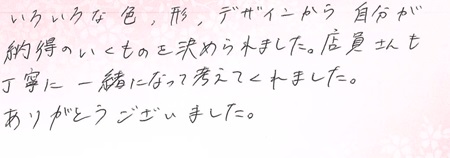 いろいろな色,形,デザインから自分が
納得のいくものを決められました。店員さんも
丁寧に一緒になって考えてくれました。
ありがとうございました。